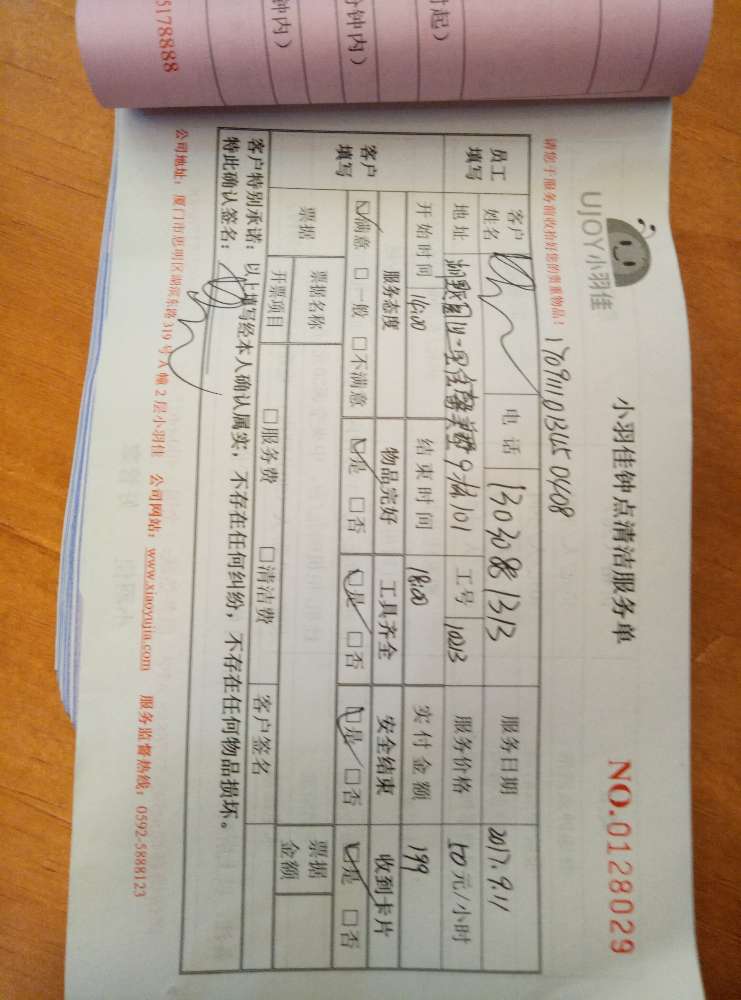 5178888
钟内）
分钟内）
时起）
UJOY小羽佳
小羽佳钟点清洁服务单
NO.0128029
请您于服务前收拾好您的贵重物品！
员工填写
客户姓名
电话
13030881313
服务日期
2017.9.11
地址
9栋101
工号
1023
服务价格
50元/小时
开始时间
16:00
结束时间
18:00
实付金额
199
客户填写
服务态度
物品完好
工具齐全
安全结束
收到卡片
☑满意 □一般 □不满意
☑是 □否
☑是 □否
☑是 □否
☑是 □否
票据
票据名称
票据金额
开票项目
□服务费 □清洁费
客户签名
客户特别承诺：以上填写经本人确认属实，不存在任何纠纷，不存在任何物品损坏。
特此确认签名：
公司地址：厦门市思明区湖滨东路319号A幢2层小羽佳 公司网站：www.xiaoyujia.com 服务监督热线：0592-5888123